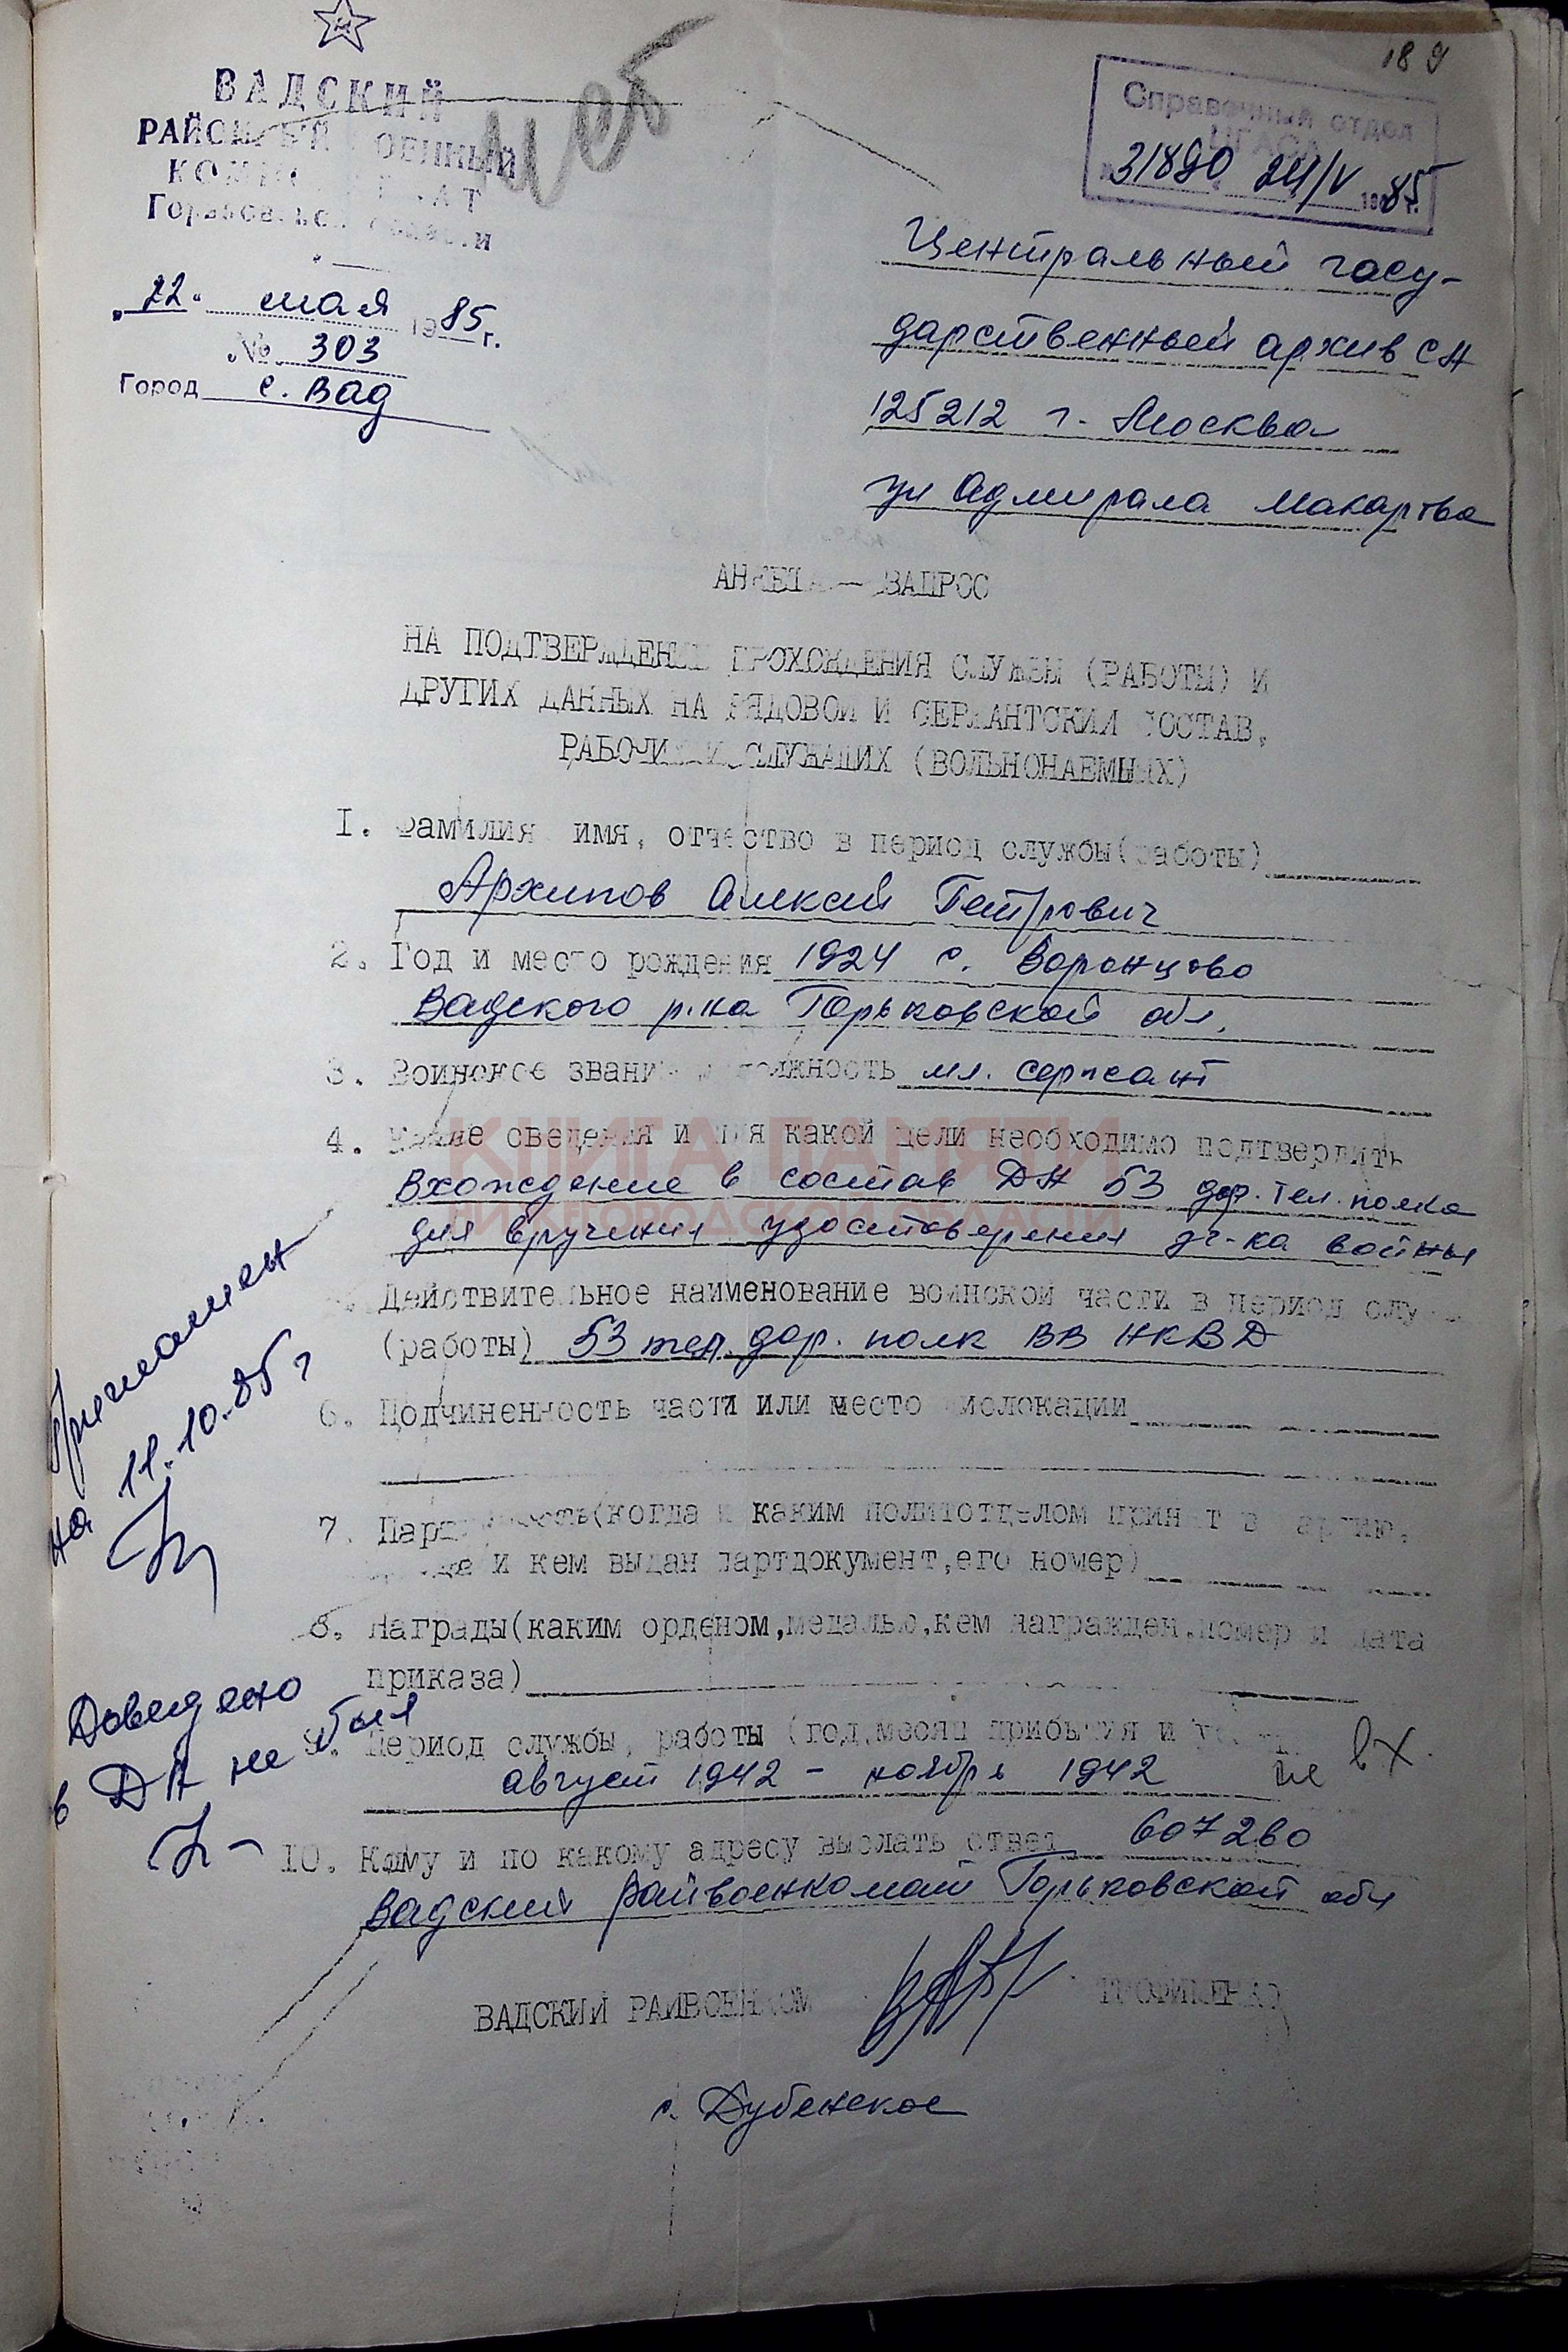 189
ВАДСКИЙ
РАЙОННЫЙ ВОЕННЫЙ
КОМИССАРИАТ
Горьковской области
"22" мая 1985 г.
№ 303
Город с. Вад
Справочный отдел
ЦГАСА
31890 24/V 1985 г.
Центральный госу-
дарственный архив СА
125212 г. Москва
ул Адмирала Макарова
АНКЕТА — ЗАПРОС
НА ПОДТВЕРЖДЕНИЕ ПРОХОЖДЕНИЯ СЛУЖБЫ (РАБОТЫ) И
ДРУГИХ ДАННЫХ НА РЯДОВОЙ И СЕРЖАНТСКИЙ СОСТАВ,
РАБОЧИХ И СЛУЖАЩИХ (ВОЛЬНОНАЕМНЫХ)
I. Фамилия имя, отчество в период службы(работы)
Архипов Алексей Петрович
2. Год и место рождения 1924 с. Воронцово
Вадского р-на Горьковской обл.
3. Воинское звание и должность мл. сержант
4. Какие сведения и для какой цели необходимо подтвердить
КНИГА ПАМЯТИ
Вхождение в состав ДА 53 дор. тел. полка
НИЖЕГОРОДСКОЙ ОБЛАСТИ
для вручения удостоверения уч-ка войны
Действительное наименование воинской части в период служ
(работы) 53 жел. дор. полк ВВ НКВД
6. Подчиненность части или место дислокации
7. Партийность(когда и каким политотделом принят в партию,
когда и кем выдан партдокумент,его номер)
8. Награды(каким орденом,медалью,кем награжден,номер и дата
приказа)
9. Период службы, работы (год,месяц прибытия и
август 1942 - ноябрь 1942 не вх.
10. Кому и по какому адресу выслать ответ 607260
Вадский райвоенкомат Горьковской обл
ВАДСКИЙ РАЙВОЕНКОМ
с. Дубенское
Приглашен
на 11.10.85 г
Доведено
в ДА не был